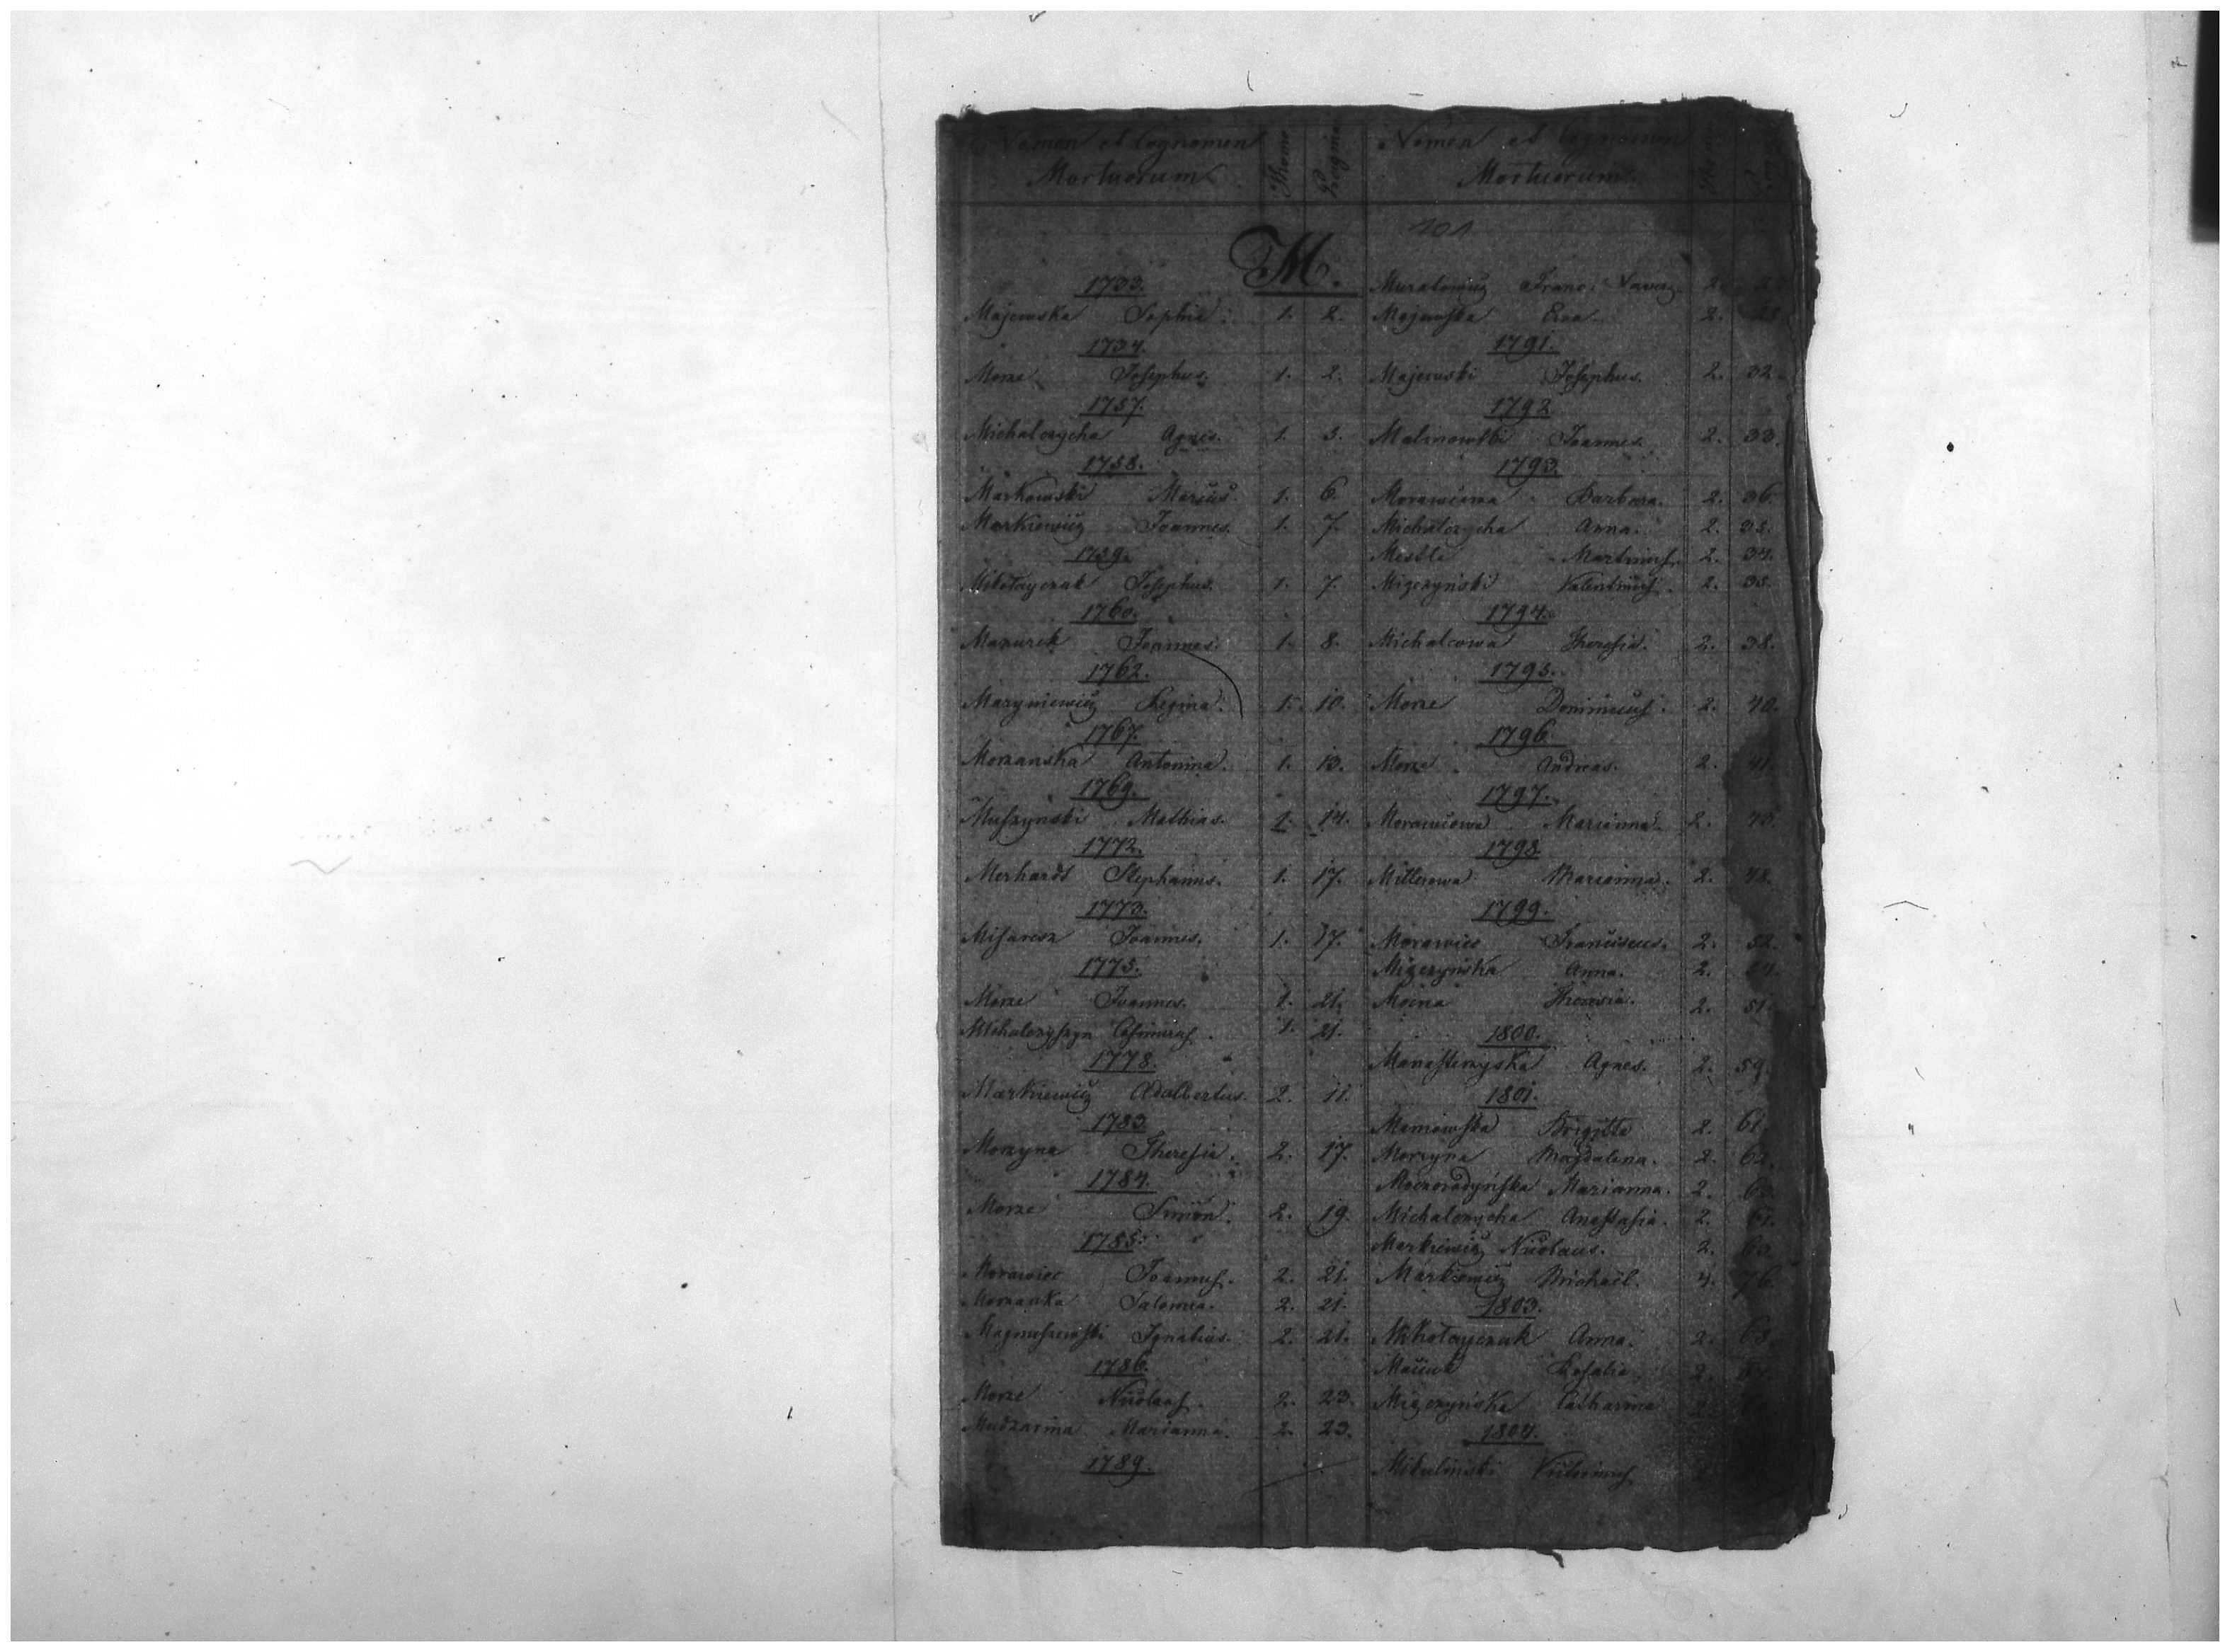 Nomen et Cognomen
Mortuorum
Thomus
Pagina
Nomen et Cognomen
Mortuorum.
101
M.
1733.
Majewska Sophia. 1. 2.
1734.
Morze Josephus. 1. 2.
1757.
Michalczycha Agnes. 1. 5.
1758.
Markowski 1. 6.
Markiewicz Joannes. 1. 7.
1759.
Mikołayczak Josephus. 1. 7.
1760.
Mazurek Joannes. 1. 8.
1762.
Maryniewicz Regina. 1. 10.
1767.
Morzanska Antonina. 1. 13.
1769.
Muszynski Mathias. 1. 14.
1772.
Merhardt Stephanus. 1. 17.
1773.
Joannes. 1. 17.
1775.
Morze Joannes. 1. 21.
Michalczyszyn Casimirus. 1. 21.
1778.
Markiewicz Adalbertus. 2. 11.
1783.
Morzyna Theresia. 2. 17.
1784.
Morze Simon. 2. 19.
1785.
Morawiec Joannes. 2. 21.
Morzanka Salomea. 2. 21.
Magnuszewski Ignatius. 2. 21.
1786.
Morze Nicolaus. 2. 23.
Mudzarina Marianna. 2. 23.
1789.
Muratowicz Franc. Xaver. 2.
Majewska Eva. 2.
1791.
Majewski Josephus. 2. 32.
1792
Malinowski Joannes. 2. 33.
1793.
Morawcowa Barbara. 2. 36.
Michalczycha Anna. 2. 35.
Martinus. 2. 34.
Mizerzyński Valentinus. 2. 35.
1794.
Michalcowa Theresia. 2. 38.
1795.
Morze Dominicus. 2. 40.
1796.
Morze Andreas. 2. 41.
1797.
Morawcowa Marianna. 2.
1798
Millerowa Marianna. 2. 48.
1799.
Morawiec Franciscus. 2. 52.
Mizerzyńska Anna. 2.
Theresia. 2. 51.
1800.
Manasterzyska Agnes. 2. 59.
1801.
Brigitta 2. 61.
Morzyna Magdalena. 2. 62.
Marianna. 2.
Michalczycha Anastasia. 2. 61.
Markiewicz Nicolaus. 2.
Markiewicz Michael. 4. 76.
1803.
Mikołayczak Anna. 2. 68.
Rosalia. 2.
Mizerzyńska Catharina
1804.
Mikulinski